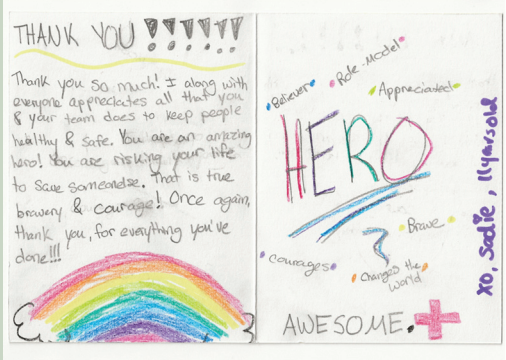 THANK YOU !!!!!!
Thank you so much! I along with
everyone appreciates all that you
& your team does to keep people
healthy & safe. You are an amazing
hero! You are risking your life
to save someone else. That is true
bravery & courage! Once again,
thank you, for everything you've
done!!!
Role-Model
Believer
Appreciated
HERO
Brave
Courages
Changes the
World
AWESOME.
xo, Sadie, 11yrsold